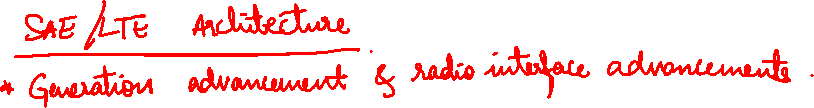 SAE/LTE Architecture.
* Generation advancement & radio interface advancements.